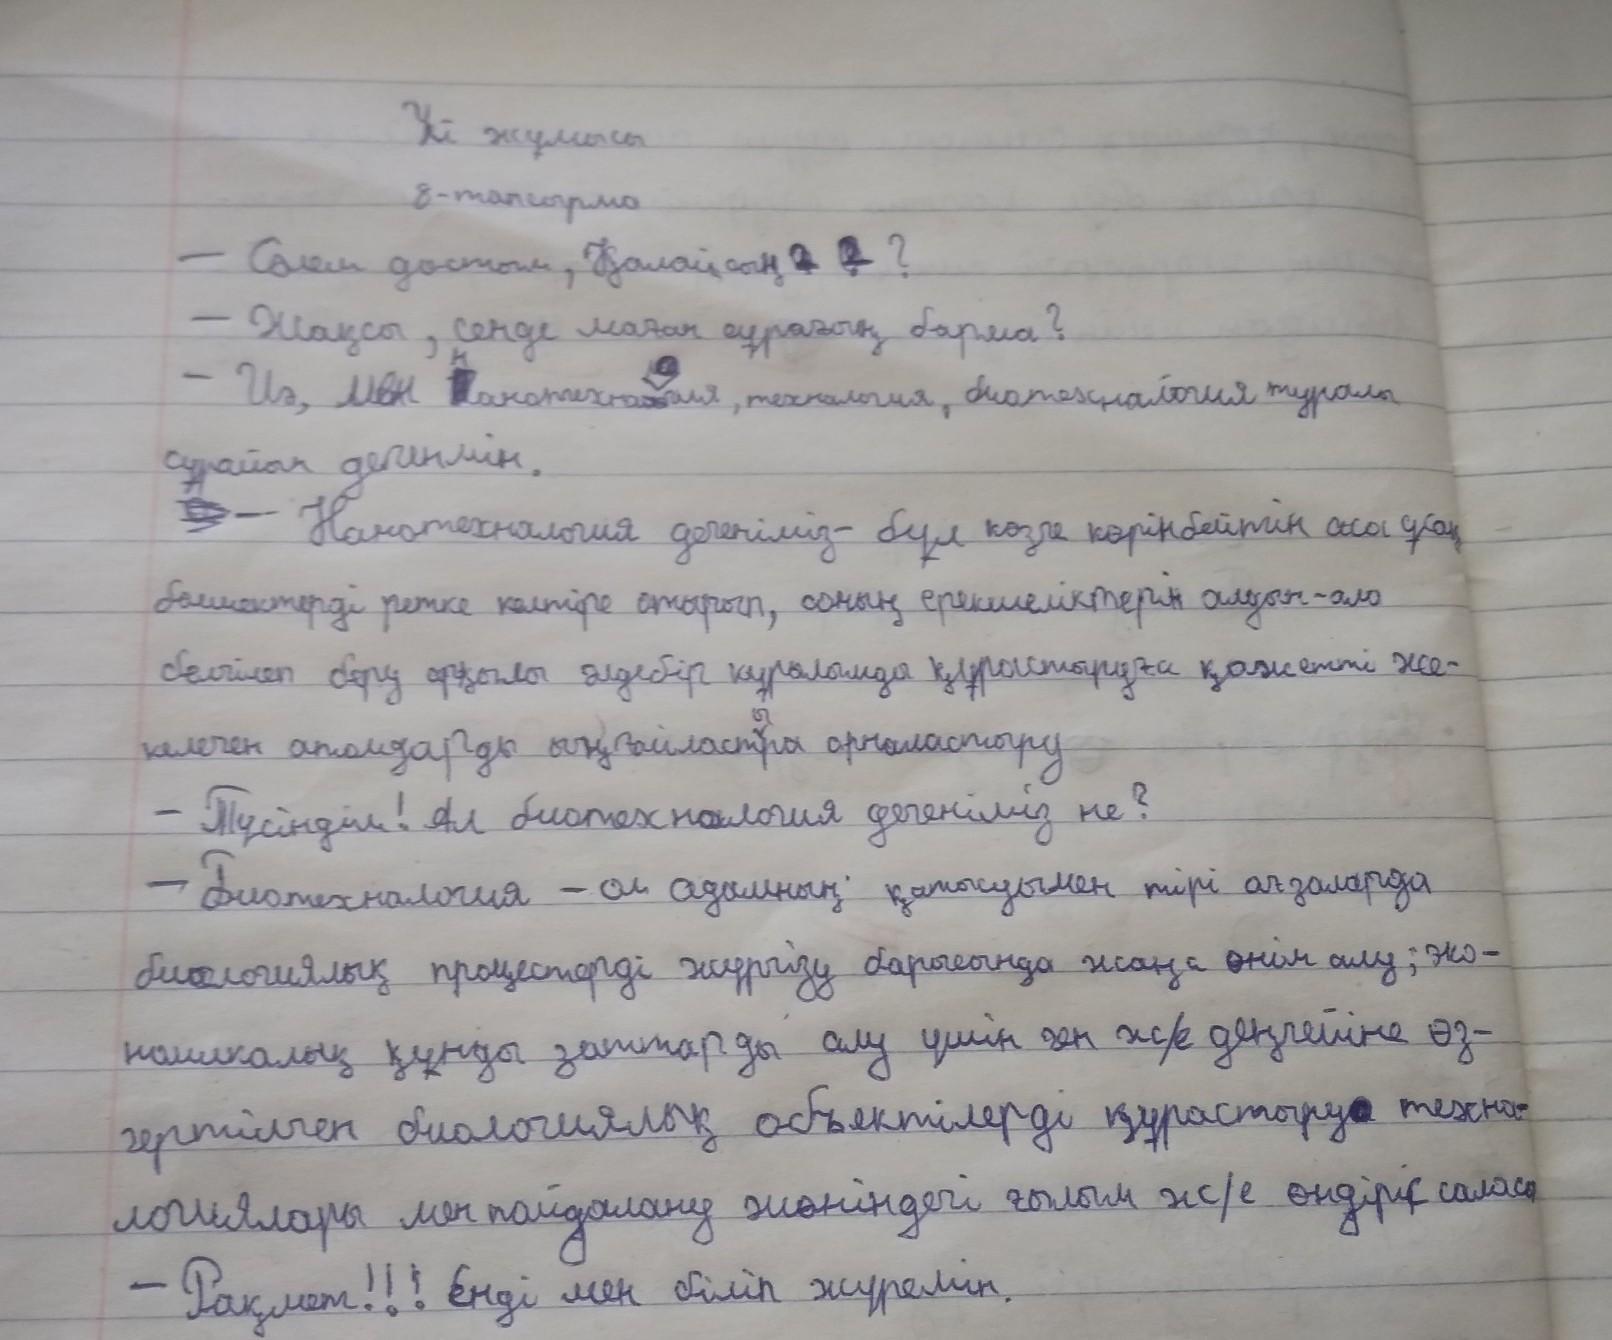 Үй жұмысы
8-тапсырма
— Сәлем достым, Қалайсың ?
— Жақсы, сенде маған сұрағың барма?
— Иә, мен нанотехналогия, техналогия, биотехналогия туралы
сұрайын дегенмін.
— Нанотехналогия дегеніміз- бұл көзге көрінбейтін аса ұсақ
бөлшектерді ретке келтіре отырып, соның ерекшеліктерін алдын-ала
белгілеп беру арқылы әлдебір құралымды құрастыруға қажетті же-
келеген атомдарды ыңғайластыра орналастыру
— Түсіндім! Ал биотехналогия дегеніміз не?
— Биотехналогия – ол адамның қатысуымен тірі ағзаларда
биологиялық процестерді жүргізу барысында жаңа өнім алу; эко-
номикалық құнды заттарды алу үшін ген ж/е деңгейіне өз-
гертілген биологиялық объектілерді құрастыру техна-
логиялары мен пайдалану жөніндегі ғылым ж/е өндіріс саласы
— Рақмет!!! Енді мен біліп жүремін.